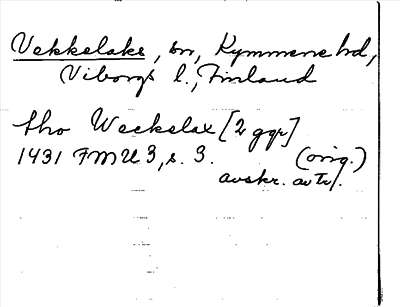 Vekkelaks, sn, Kymmene hd,
Viborgs l., Finland
tho Weckelax [2 ggr]
1431 FMU 3, s. 3. (orig.)
avskr. av tr.